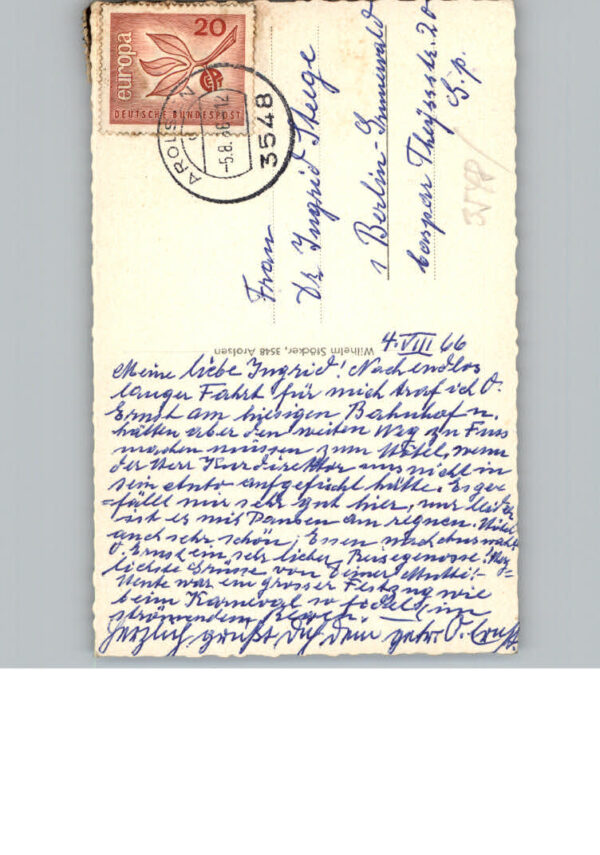 europa
20
DEUTSCHE BUNDESPOST
AROLSEN
-5.8.66
3548
Frau
Dr Ingrid
1 Berlin-Grunewald
20
Wilhelm Stöcker, 3548 Arolsen
4.VIII 66
Meine liebe Ingrid! Nach endlos
langer Fahrt für mich traf ich O.
Ernst am hiesigen Bahnhof u.
hätten aber den weiten Weg zu Fuss
machen müssen zum Hotel, wenn
der Herr Kurdirektor uns nicht in
sein Auto aufgefischt hätte. Es ge=
fällt mir sehr gut hier, nur leider
ist es mit Pausen am regnen. Hotel
auch sehr schön, Essen nach Auswahl
O. Ernst ein sehr lieber Reisegenosse! Herz=
lichste Grüsse von Deiner Mutti!-
Heute war ein grosser Festzug wie
beim Karneval so im
strömenden Regen.
Herzlich grüßt Dich Dein O. Ernst.